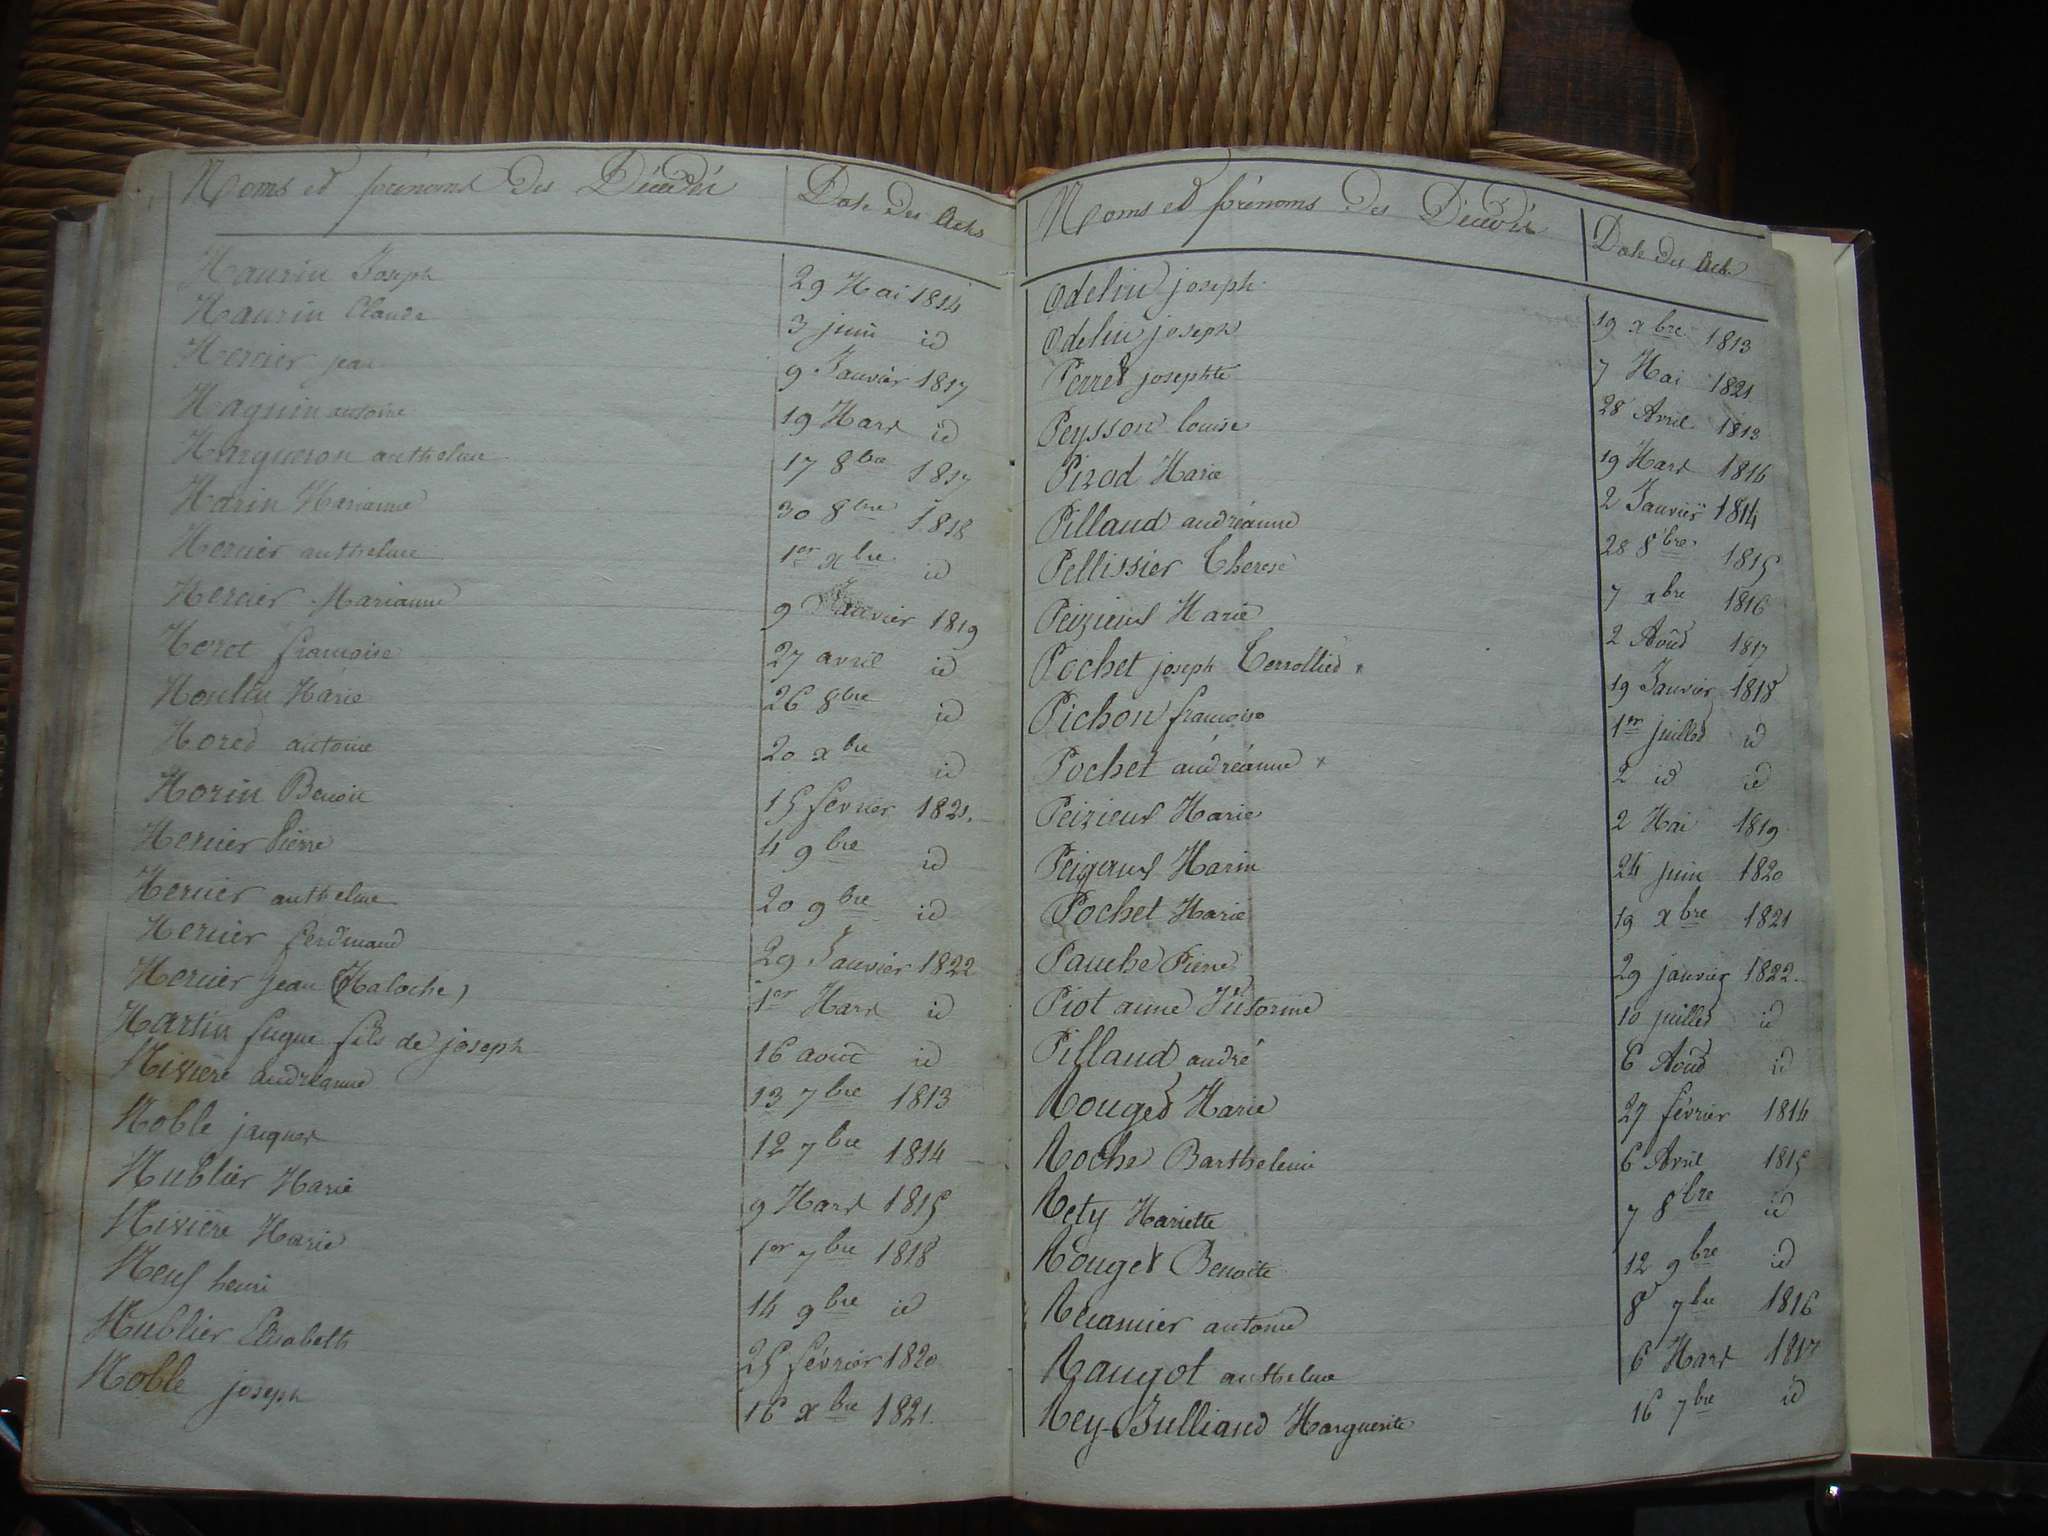 Noms et prénoms des Décédés Date des Actes
Maurin Joseph 29 Mai 1814
Maurin Claude 3 juin id
Mercier jean 9 Janvier 1817
Maguin antoine 19 Mars id
Margueron anthelme 17 8bre 1817
Marin Marianne 30 8bre 1818
Mercier anthelme 1er xbre id
Mercier Marianne 9 Janvier 1819
Moret francoise 27 avril id
Moulin Marie 26 8bre id
Moret antoine 20 xbre id
Morin Benoit 15 fevrier 1821.
Mercier Pierre 4 9bre id
Mercier anthelme 20 9bre id
Mercier ferdinand 29 Janvier 1822
Mercier Jean (Maloche) 1er Mars id
Martin fils de joseph 16 aout id
Nivière andréanne 13 7bre 1813
Noble jacques 12 7bre 1814
Nublier Marie 9 Mars 1815
Nivière Marie 1er 7bre 1818
henri 14 9bre id
Nublier Elisabeth 25 février 1820
Noble joseph 16 xbre 1821.
Noms et prénoms des Décédés Date des Act.
Odelin joseph 19 xbre 1813
Odelin joseph 7 Mai 1821
Perret josephte 28 Avril 1813
Peysson louise 19 Mars 1816
Pirod Marie 2 Janvier 1814
Pillaud andréanne 28 8bre 1815
Pellissier Therese 7 xbre 1816
Peizieux Marie 2 Aoud 1817
Pochet joseph 19 Janvier 1818
Pichon francoise 1er juilled id
Pochet andréanne x 2 id id
Peizieux Marie 2 Mai 1819
Marin 24 juin 1820
Pochet Marie 19 xbre 1821
Pauche Pierre 29 janvier 1822.
Piot anne 10 juilled id
Pillaud andré 6 Aoud id
Rouged Marie 27 février 1814
Roche Barthelemi 6 Avril 1815
Rety Mariette 7 8bre id
Rouget Benoite 12 9bre id
Récamier antoine 8 7bre 1816
Raugot anthelme 6 Mars 1817
Rey-Julliand Marguerite 16 7bre id